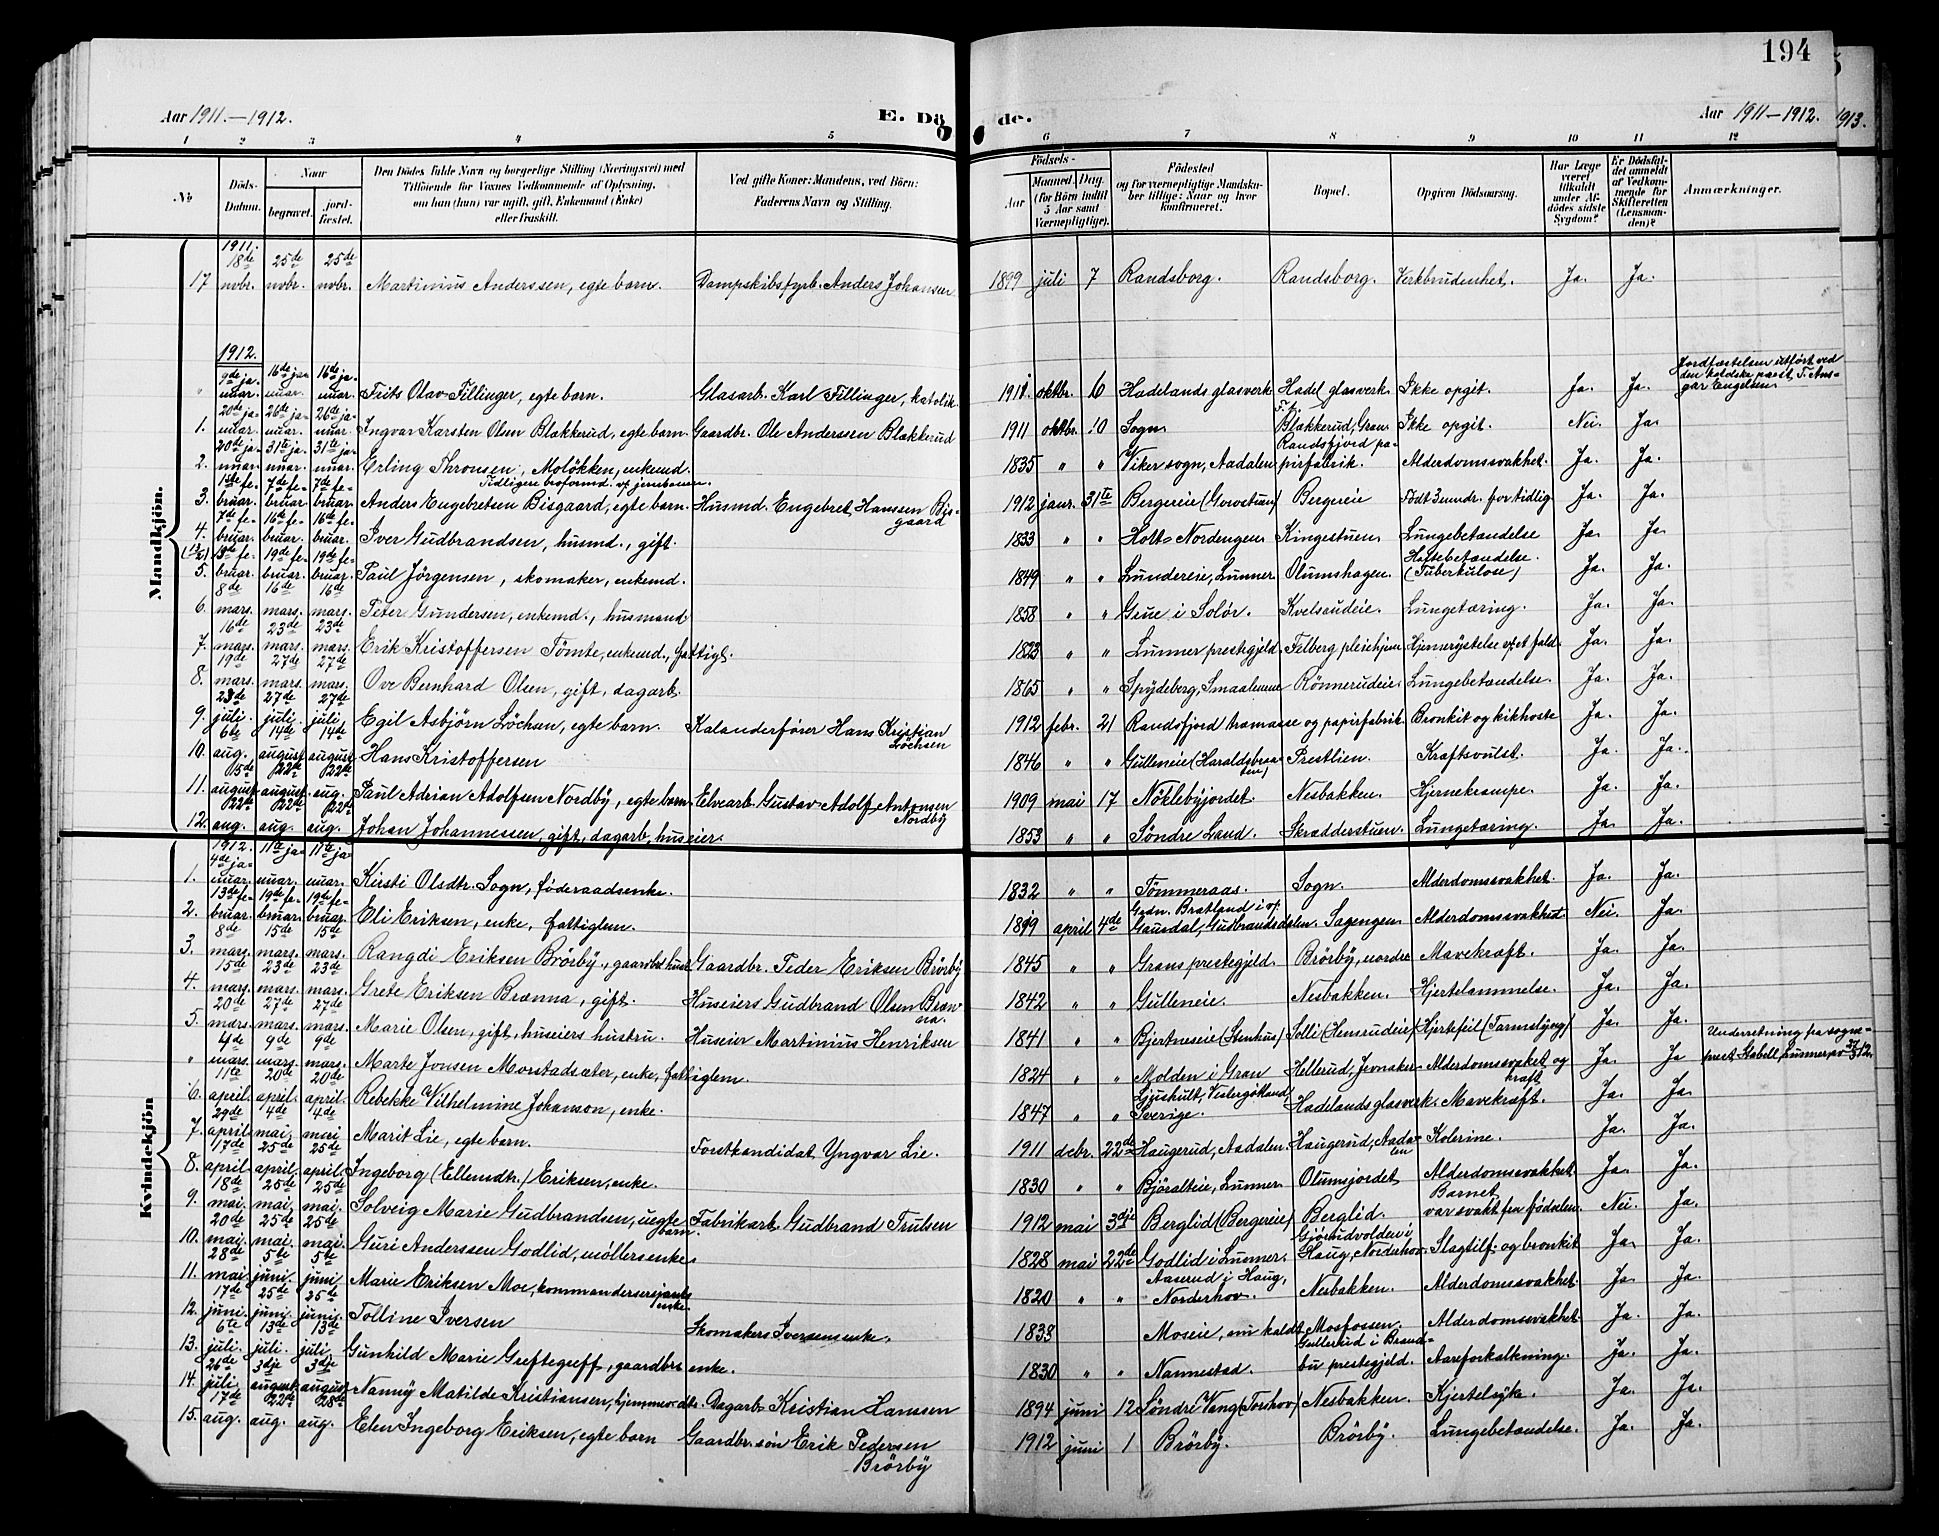 194
Aar 1911.—1912.
E. Dö
de.
Aar 1911—1912.
1913.
1 2 3 4 5 6 7 8 9 10 11 12
No
Döds-Datum.
Naar
begravet.
jord-fæstet.
Den Dödes fulde Navn og borgerlige Stilling (Næringsvei) med
Tilföiende for Voxnes Vedkommende af Oplysning,
om han (hun) var ugift, gift, Enkemand (Enke)
eller fraskilt.
Ved gifte Koner: Mandens, ved Börn:
Faderens Navn og Stilling.
Födsels-
Aar
Maaned. Dag.
(for Börn indtil
5 Aar samt
Værnepligtige).
Födested
og for værnepligtige Mandska-
ber tillige: Naar og hvor
konfirmeret.
Bopæl.
Opgiven Dödsaarsag.
Har Læge
været
tilkaldt
under Af-
dödes sidste
Sygdom?
Er Dödsfal-
det anmeldt
af Vedkom-
mende for
Skifteretten
(Lensman-
den)?
Anmærkninger.
Mandkjön.
1911.
17 18de novbr. 25de novbr. 25de novbr. Martinius Anderssen, egte barn. Dampskibsfyrb. Anders Johansen 1899 juli 7 Randsborg. Randsborg. Verkbrudenhet. Ja. Ja.
1912.
" 9de januar. 16de januar. 16de januar. Frits Olav Fillinger, egte barn. Glasarb. Karl Fillinger, katolik. 1911 oktbr. 6 Hadelands glasverk Hadel. glasverk Ikke opgit. Ja. Ja. Jordfæstelsen utført ved den katolske prest T. Ansgar Engelsen.
1. 20de januar. 26de januar. 26de januar. Ingvar Karsten Olsen Blækkerud, egte barn. Gaardbr. Ole Anderssen Blækkerud 1911 oktbr. 10 Sogn Blækkerud, Gran Ikke opgit. Nei. Ja.
2. 20de januar. 31te januar. 31te januar. Erling Thronsen, Moløkken, enkemd. Tidligere broformd. v/ jernbanen. 1835 " " Viker sogn, Aadalen Randsfjord papirfabrik. Alderdomssvakhet. Ja. Ja.
3. 1ste februar. 7de februar. 7de februar. Anders Engebretsen Bisgaard, egte barn. Husmd. Engebret Hanssen Bisgaard 1912 janr. 31te Bergereie Bergereie Født 3 mndr. for tidlig Ja. Ja.
4. 7de februar. 16de februar. 16de februar. Iver Gudbrandsen, husmd., gift. 1833 " " Holt-Nordengen Kingestuen Lungebetændelse Ja. Ja.
5. 13de februar. 19de februar. 19de februar. Paul Jörgensen, skomaker, enkemd. 1849 " " Lundereie, Lunner Olumshagen. Halsebetændelse (Tuberkulose) Ja. Ja.
6. 8de mars. 16de mars. 16de mars. Peter Gundersen, enkemd., husmand 1858 " " Grue i Solör. Kvelsrudeie. Lungetæring. Ja. Ja.
7. 16de mars. 23de mars. 23de mars. Erik Kristoffersen Tömte, enkemd., fattigl. 1823 " " Lunner prestegjeld. Felberg pleiehjem Hjernrystelse v/ et fald. Ja. Ja.
8. 19de mars. 27de mars. 27de mars. Ove Bernhard Olsen, gift, dagarb. 1865 " " Spydeberg, Smaalenene Rönnerudeie Lungebetændelse. Ja. Ja.
9. 23de juli. 27de juli. 27de juli. Egil Asbjörn Löchen, egte barn. Kalanderfører Hans Kristian Löchsen 1912 febr. 21 Randsfjord træmasse og papirfabrik. Bronkit og kikhoste Ja. Ja.
10. 6te aug. 14de august 14de august Hans Kristoffersen 1846 " " Gulleneie (Haraldsbraaten) Prestlien. Kræftsvulst. Ja. Ja.
11. 15de august. 22de august. 22de aug. Paul Adrian Adolfsen Nordby, egte barn. Elvearb. Gustav Adolf Antonsen Nordby 1909 mai 17 Nöklebyjordet. Nesbakken. Hjernekrampe. Ja. Ja.
12. 22de aug. 22de aug. 22de aug. Johan Johannessen, gift, dagarb., huseier. 1853 " " Söndre Land. Skrædderstuen. Lungetæring. Ja. Ja.
Kvindekjön
1912.
1. 4de januar. 11te januar. 11te januar. Kirsti Olsdtr. Sogn, föderaadsenke. 1832 " " Tömmeraas. Sogn. Alderdomssvakhet. Ja. Ja.
2. 13de februar. 19de februar. 19de februar. Eli Eriksen, enke, fattiglem. april 4de Grdn. Bratland i v/ Gausdal, Gudbrandsdalen. Sagengen Alderdomssvakhet. Nei. Ja.
3. 8de mars. 15de mars. 15de mars. Rangdi Eriksen Brörby, gaardbr. hustr. Gaardbr. Peder Eriksen Brörby 1845 " " Grans prestegjeld. Brörby, nordre Mavekræft. Ja. Ja.
4. 15de mars. 23de mars. 23de mars. Grete Eriksen Brænna, gift. Huseiers Gudbrand Olsen Brænna. 1842 " " Gulleneie. Nesbakken. Hjertelammelse. Ja. Ja.
5. 20de mars. 27de mars. 27de mars. Marie Olsen, gift, huseiers hustru. Huseier Martinius Henriksen 1841 " " Bjertneseie (Stenhus) Solli (Henserudeie) Hjertefeil (Tarmslyng) Ja. Ja.
" 4de mars. 9de mars. 9de mars. Marte Jonsen Morstadsæter, enke, fattiglem. 1824 " " Molden i Gran Hellerud, Jevnaker Alderdomssvakhet og kræft Ja. Ja Underretning fra sogneprest Stabell, Lunner, av 27/3 12.
6. 11te april. 20de april. 20de april. Rebekke Vilhelmine Johanson, enke. 1847 " " Ljushult, Vestergötland, Sverige. Hadelands glasverk. Mavekræft. Ja. Ja.
7. 29de april. 4de mai. 4de mai Marit Lie, egte barn. Forstkandidat Yngvar Lie. 1911 decbr. 22de Haugerud, Aadalen. Haugerud, Aadalen Kolerine. Ja. Ja.
8. 17de april. 25de april. 25de april. Ingeborg (Ellensdtr.) Eriksen, enke. 1830 " " Björalteie, Lunner Olumsjordet Alderdomssvakhet Ja. Ja.
9. 18de mai. 25de mai. 25de mai. Solveig Marie Gudbrandsen, uegte barn. Fabrikarb. Gudbrand Trulsen 1912 mai 3dje Berglid (Bergereie) Berglid. Barnet var svakt fra fødselen. Nei. Ja.
10. 20de mai. 25de mai. 25de mai. Guri Anderssen Godlid, møllersenke 1828 mai 22de Godlid i Lunner. Gjörmdvolden i Haug, Norderhov. Slagtilf. og bronkit Ja. Ja.
11. 28de mai. 5te juni. 5te juni. Marie Eriksen Moe, kommandersersjants enke. 1820 " " Aaserud i Haug, Norderhov. Nesbakken. Alderdomssvakhet. Ja. Ja.
12. 17de juni. 25de juni. 25de juni. Tolline Iversen Skomakers Iversens enke. 1838 Moseie, nu kaldt Mosfossen. Alderdomssvakhet Ja. Ja.
13. 6te juli. 13de juli. 13de juli. Gunhild Marie Greftegreff, gaardbrs enke. 1830 " " Nannestad. Gullerud i Brandbu prestegjeld. Aareforkalkning. Ja. Ja.
14. 26de juli. 3dje august 3dje august Nanny Matilde Kristiansen, hjemmev. dtr. Dagarb. Kristian Hanssen 1894 juni 12 Söndre Vang (Torshov) Nesbakken. Kjertelsyke. Ja. Ja.
15. 17de aug. 22de aug. 28de aug. Elen Ingeborg Eriksen, egte barn Gaardbr. søn Erik Pedersen Brörby 1912 juni 1 Brörby. Brörby. Lungebetændelse. Ja. Ja.